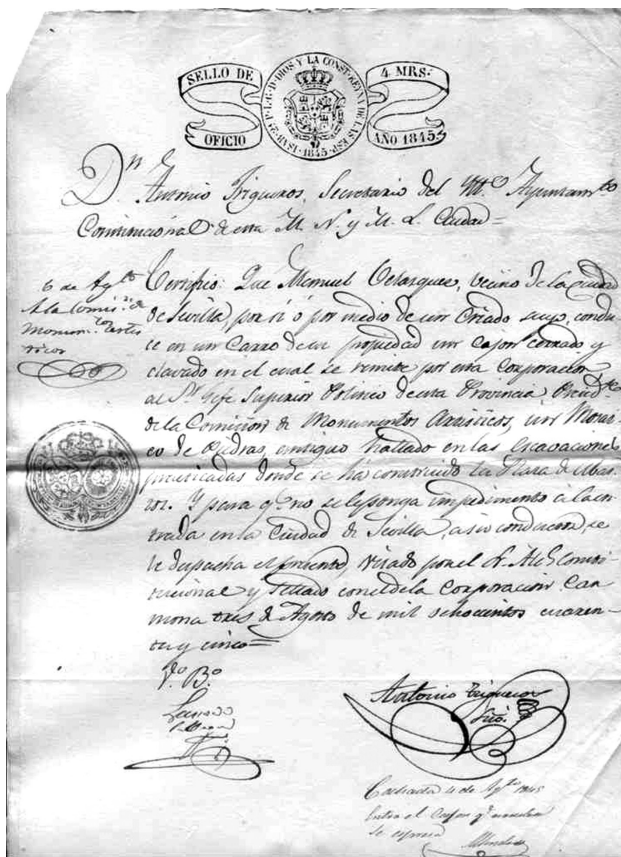 SELLO DE 4 MRS:
OFICIO AÑO 1845
ISAB. 2ª P. L. G. D. DIOS Y LA CONST. REYNA DE LAS ESP.
1845
Dn. Antonio Trigueros, Secretario del Ayuntamto
Constitucional de esta M. N. y M. L. Ciudad=
6 de Agto
A la Comisn. de
Monumtos artis
ticos
Certifico: Que Manuel Velazquez, vecino de la Ciudad
de Sevilla, por sí ó por medio de un Criado suyo, condu-
ce en un Carro de su propiedad un cajon cerrado y
clavado en el cual se remite por esta Corporacion
al Sr. Gefe Superior Politico de esta Provincia Presidte
de la Comision de Monumentos Artisticos, un Mosai-
co de Piedras, antiguo hallado en las escavaciones
practicadas donde se há construido la Plaza de Abas-
tos. Y para qe. no se le ponga impedimento á la en-
trada en la Ciudad de Sevilla, á su conduccion, se
le despacha el presente visado por el Sr. Alce Consti-
tucional y sellado con el de la Corporacion. Car-
mona tres de Agosto de mil ochocientos cuaren-
ta y cinco=
Vo. Bo.
Antonio Trigueros
Srio.
4 de Agto 1845
entra el Cajon qe
se espresa